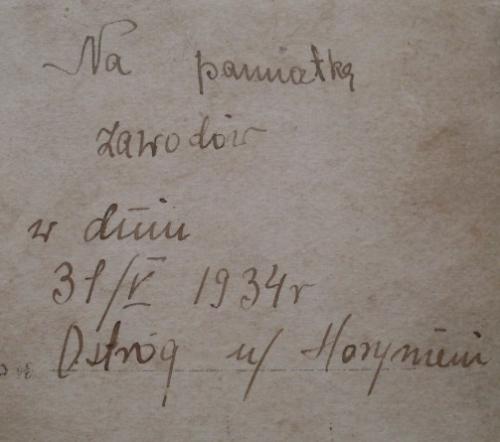 Na pamiatką
zawodów
w dniu
31/V 1934r
Ostróg n/ Horyniem